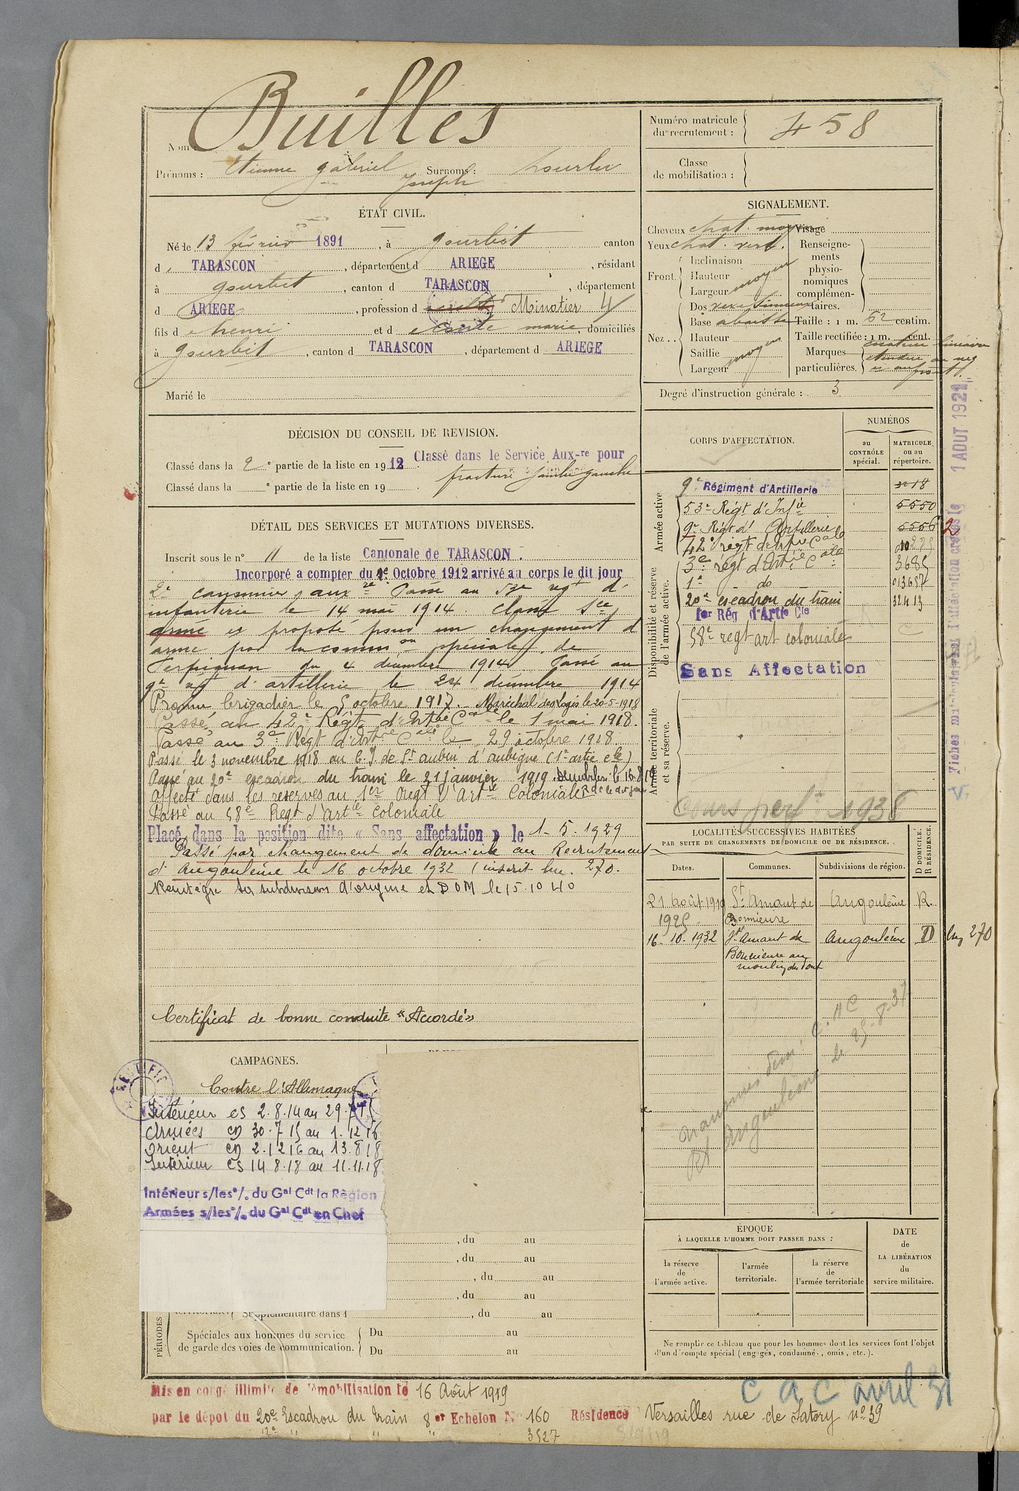 Nom Builles
Prénoms : Etienne gabriel Joseph Surnoms :
ÉTAT CIVIL.
Né le 13 février 1891, à gourbit canton
d TARASCON, département d ARIEGE, résidant
à gourbit, canton d TARASCON, département
d ARIEGE, profession d Minotier
fils d henri et d marie, domiciliés
à gourbit, canton d TARASCON, département d ARIEGE
Marié le
DÉCISION DU CONSEIL DE REVISION.
Classé dans la 2e partie de la liste en 1912 Classé dans le Service Aux-re pour
Classé dans la e partie de la liste en 19 fracture jambe gauche
DÉTAIL DES SERVICES ET MUTATIONS DIVERSES.
Inscrit sous le n° 11 de la liste Cantonale de TARASCON.
Incorporé a compter du Octobre 1912 arrivé au corps le dit jour
2e canonnier aux re Passé au 53e regt d'
infanterie le 14 mai 1914. Classé Sce
armé et proposé pour un changement d'
arme par la comm on spéciale de
Perpignan du 4 décembre 1914. Passé au
9e rgt d'artillerie le 24 décembre 1914
Promu brigadier le 5 octobre 1917. Maréchal des Logis le 20-5-1918
Passé au 42e Régt d'Art Cale le 1 mai 1918.
Passé au 3e Régt d'Artie Cale le 29 octobre 1918
Passé le 3 novembre 1918 au C.J. de St aubin d'aubigné (1e artie cle)
Passé au 20e escadron du train le 21 Janvier 1919.
Affecté dans les réserves au 1er Regt d'Art ie Coloniale
Passé au 58e Regt d'art ie coloniale
Placé dans la position dite « Sans affectation » le 1-5-1929
Passé par changement de domicile au Recrutement
d'Angoulême le 16 octobre 1932 (inscrit Nu. 270.
Réintègre sa subdivision d'origine et DOM le 15.10.40
Certificat de bonne conduite "Accordé"
CAMPAGNES.
Contre l'Allemagne
Intérieur CS 2.8.14 au 29.7.15
Armées CD 30.7.15 au 1.12.16
Orient CD 2.12.16 au 13.8.18
Intérieur CS 14.8.18 au 11.11.18
Intérieur s/les °/. du Gal Cdt la Région
Armées s/les °/. du Gal Cdt en Chef
, du au
, du au
, du au
, du au
Supplémentaire dans l , du au
PÉRIODES
Spéciales aux hommes du service
de garde des voies de communication.
Du au
Du au
Mis en congé illimité de démobilisation le 16 Août 1919
par le dépot du 20e Escadron du Train 8 er Echelon N° 160 Résidence Versailles rue de Satory n° 39
3527
Numéro matricule
du recrutement : 458
Classe
de mobilisation :
SIGNALEMENT.
Cheveux chat. moyen Visage
Yeux chat. vert.
Front. Inclinaison
Hauteur moyen
Largeur
Nez . . Dos
Base
Hauteur
Saillie moyen
Largeur
Renseigne-
ments
physio-
nomiques
complémen-
taires.
Taille : 1 m. 62 centim.
Taille rectifiée : 1 m. cent.
Marques
particulières.
Degré d'instruction générale : 3
CORPS D'AFFECTATION.
NUMÉROS
au
CONTRÔLE
spécial.
MATRICULE
ou au
répertoire.
Armée active
9e Régiment d'Artillerie
53e Régt d'Infie 5550
9e Régt d' Artillerie 5556
Disponibilité et réserve
de l'armée active.
42e régt d'artie Cale
3e regt d'Artie Cale 3685
1e do
20e escadron du train 32413
1er Rég d'Artie Cle
58e regt art coloniale
Sans Affectation
Armée territoriale
et sa réserve.
1938
LOCALITÉS SUCCESSIVES HABITÉES
PAR SUITE DE CHANGEMENTS DE DOMICILE OU DE RÉSIDENCE.
Dates.
Communes.
Subdivisions de région.
D DOMICILE.
R RÉSIDENCE.
21 août 1919 St Amant de Angoulême R.
1925 Bonnieure
16.10.1932 St Amant de Angoulême D 270
Bonnieure au
moulin du Pont
ÉPOQUE
À LAQUELLE L'HOMME DOIT PASSER DANS :
la réserve
de
l'armée active.
l'armée
territoriale.
la réserve
de
l'armée territoriale
DATE
de
LA LIBÉRATION
du
service militaire.
Ne remplir ce tableau que pour les hommes dont les services font l'objet
d'un décompte spécial (engagés, condamnés, omis, etc.).
C a C avril 31
1 AOUT 1921